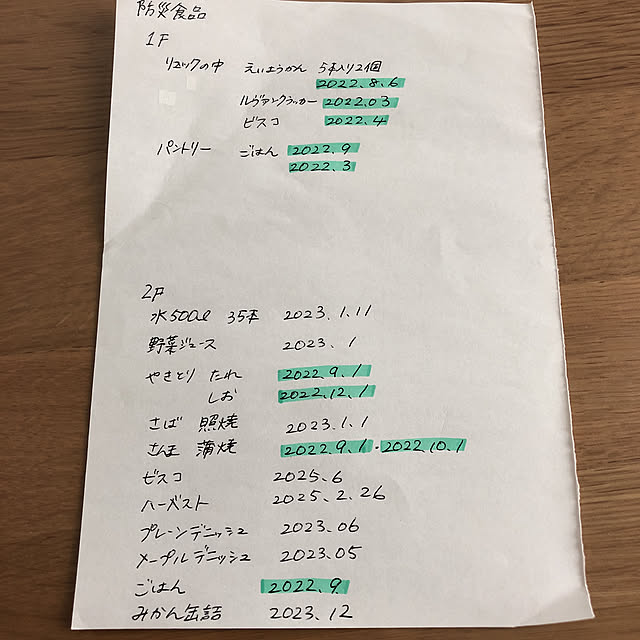 防災食品
1F
リュックの中 えいようかん 5本入り2個
2022.8.6
ルヴァンクラッカー 2022.03
ビスコ 2022.4
パントリー ごはん 2022.9
2022.3
2F
水500ml 35本 2023.1.11
野菜ジュース 2023.1
やきとり たれ 2022.9.1
しお 2022.12.1
さば 照焼 2023.1.1
さんま 蒲焼 2022.9.1・2022.10.1
ビスコ 2025.6
ハーベスト 2025.2.26
プレーンデニッシュ 2023.06
メープルデニッシュ 2023.05
ごはん 2022.9
みかん缶詰 2023.12